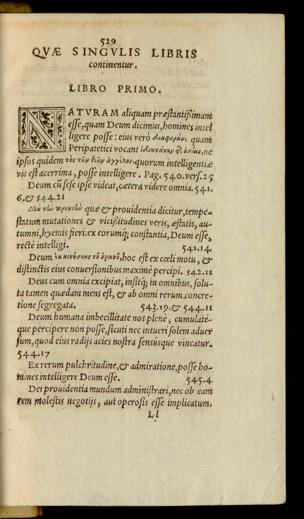 529
QVÆ SINGVLIS LIBRIS
continentur.
LIBRO PRIMO.
NATVRAM aliquam præstantißimam
esse, quam Deum dicimus, homines intel
ligere posse: eius verò διαφορὰν, quam
Peripatetici vocant οὐσίας, ne
ipsos quidem τὰς τῶν θεῶν ἀγγέλας quorum intelligentiæ
vis est acerrima, posse intelligere. Pag. 540. vers. 25
Deum cũ sese ipse videat, cætera videre omnia. 541.
6. & 544.21
quæ & prouidentia dicitur, tempe-
statum mutationes & vicißitudines veris, æstatis, au-
tumni, hyemis fieri: ex eorumq; constantia, Deum esse,
rectè intelligi. 541.14
Deum ἐκ κινήσεως τοῦ οὐρανοῦ, hoc est ex cœli motu, &
distinctis eius conuersionibus maximè percipi. 542.11
Deus cum omnia excipiat, insitq; in omnibus, solu-
ta tamen quædam mens est, & ab omni rerum concre-
tione segregata. 543.19. & 544.11
Deum humana imbecillitate nos plenè, cumulate-
que percipere non posse, sicuti nec intueri solem aduer
sum, quod eius radijs acies nostra sensúsque vincatur.
544.17
Ex rerum pulchritudine, & admiratione, posse ho-
mines intelligere Deum esse. 545.4
Dei prouidentia mundum administrari, nec ob eam
rem molestis negotijs, aut operosis esse implicatum.
Ll